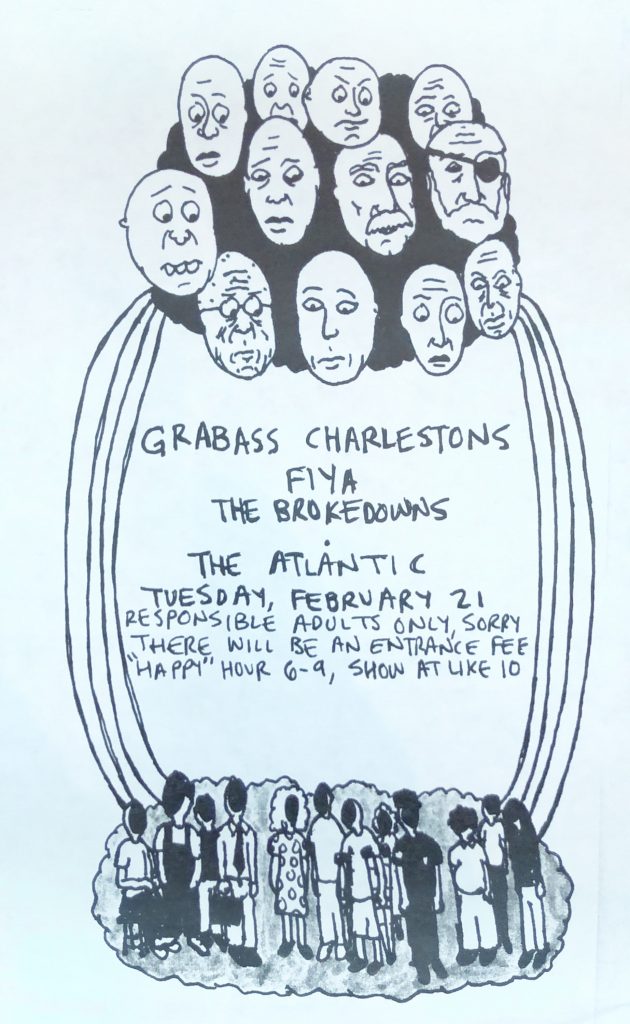 GRABASS CHARLESTONS
FIYA
THE BROKEDOWNS
.
THE ATLANTIC
TUESDAY, FEBRUARY 21
RESPONSIBLE ADULTS ONLY, SORRY
THERE WILL BE AN ENTRANCE FEE
"HAPPY" HOUR 6-9, SHOW AT LIKE 10